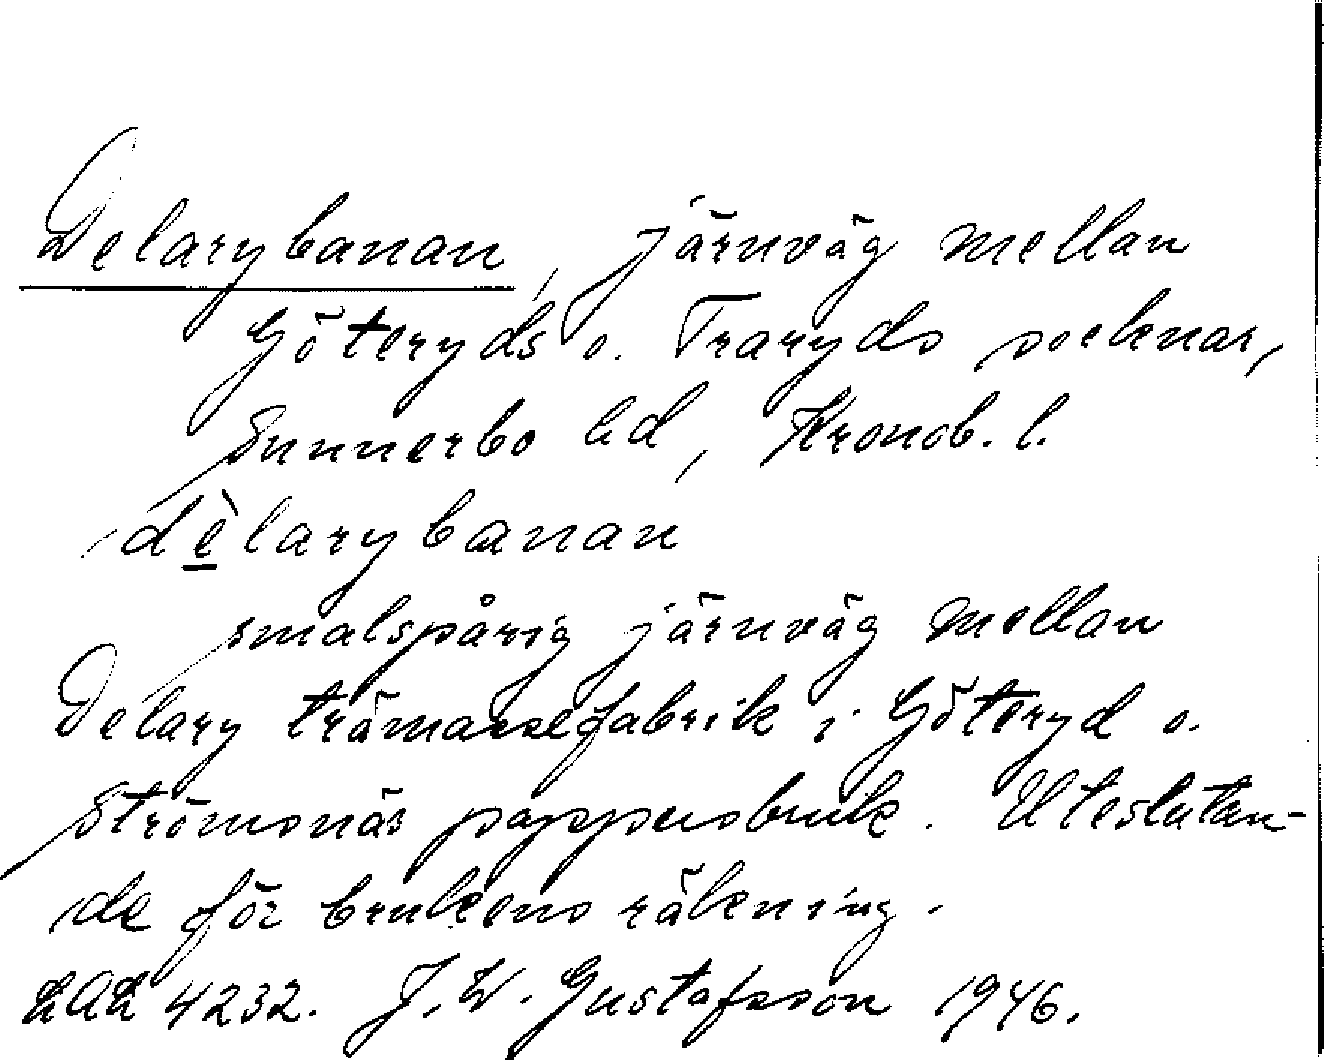 Delarybanan, järnväg mellan
Göteryds o. Traryds socknar,
Sunnerbo hd, Kronob. l.
dèlarybanan
smalspårig järnväg mellan
Delary trämassefabrik i Göteryd o.
Strömsnäs pappersbruk. Uteslutan-
de för brukens räkning.
LAL 4232. J. W. Gustafsson 1946.